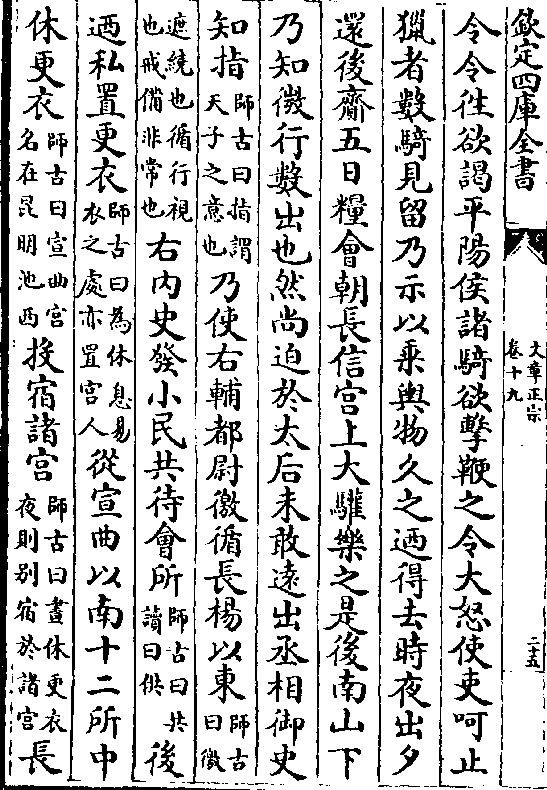 欽定四庫全書
文章正宗
卷十九
二十五
令令徃欲謁平陽侯諸騎欲擊鞭之令大怒使吏呵止
獵者數騎見留乃示以乘輿物久之迺得去時夜出夕
還後齎五日糧會朝長信宮上大驩樂之是後南山下
乃知微行數出也然尚迫於太后未敢逺出丞相御史
知指師古曰指謂天子之意也乃使右輔都尉徼循長楊以東師古曰徼
遮繞也循行視也戒備非常也右內史發小民共待會所師古曰共讀曰供後
迺私置更衣師古曰為休息易衣之處亦置宮人從宣曲以南十二所中
休更衣師古曰宣曲宮名在昆明池西投宿諸宮師古曰晝休更衣夜則别宿於諸宮長